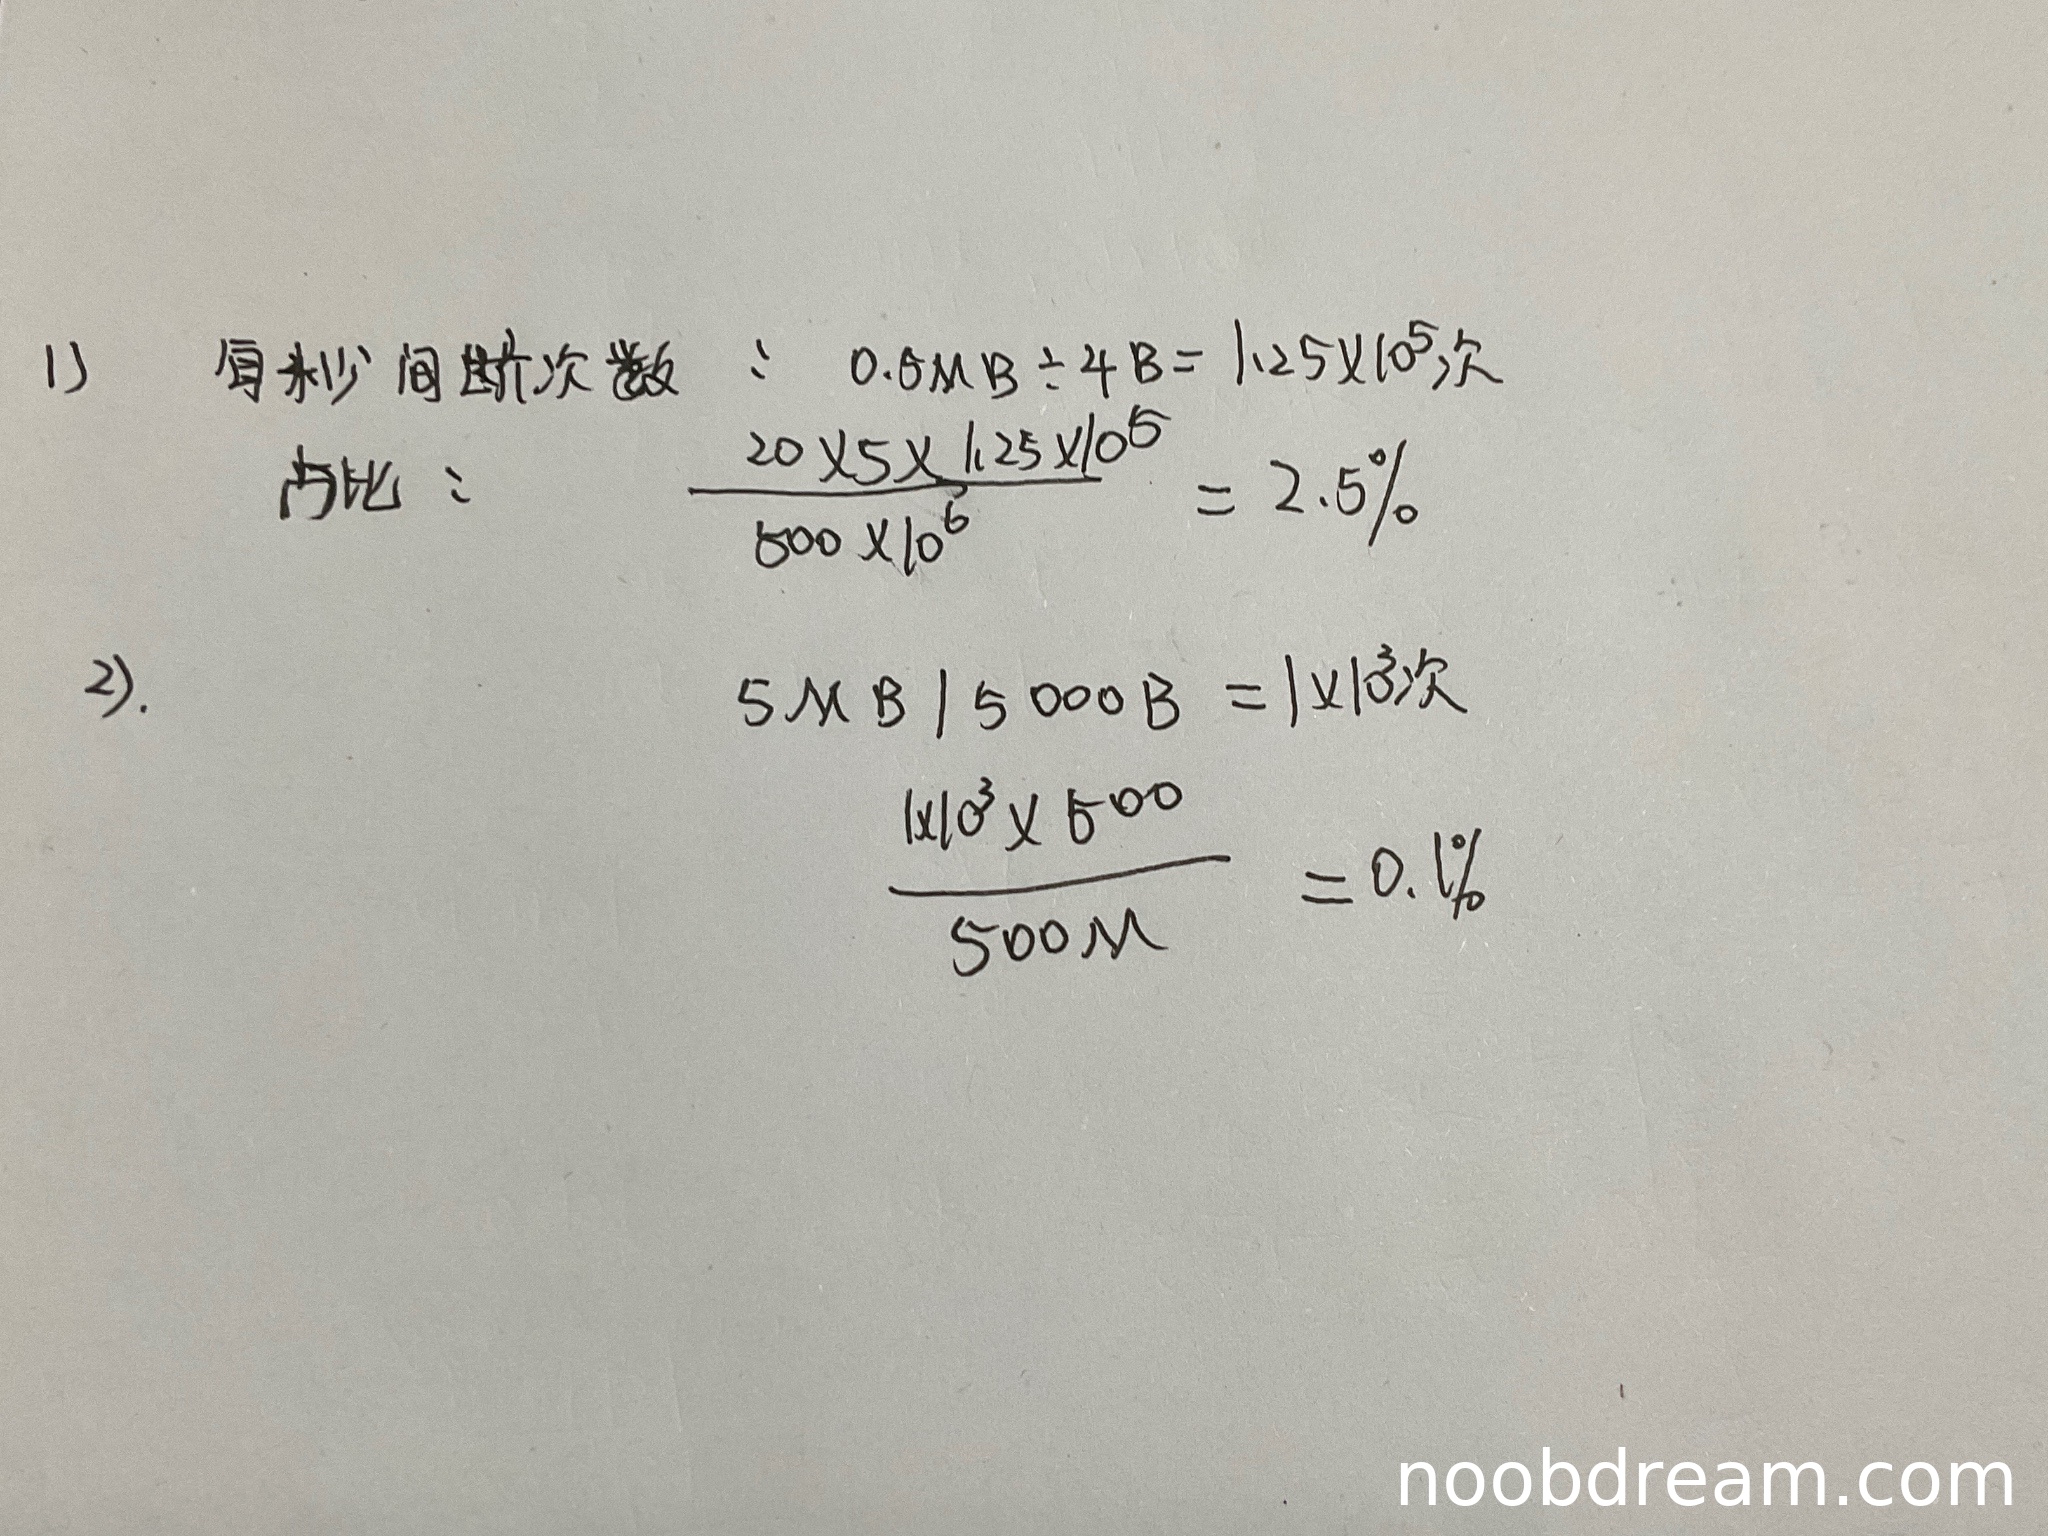 1) 每秒间断次数： 0.5MB÷4B=1.25×10⁵次
占比： 20×5×1.25×10⁵ / 500×10⁶ = 2.5%
2). 5MB/5000B=1×10³次
1×10³×500 / 500M = 0.1%
noobdream.com